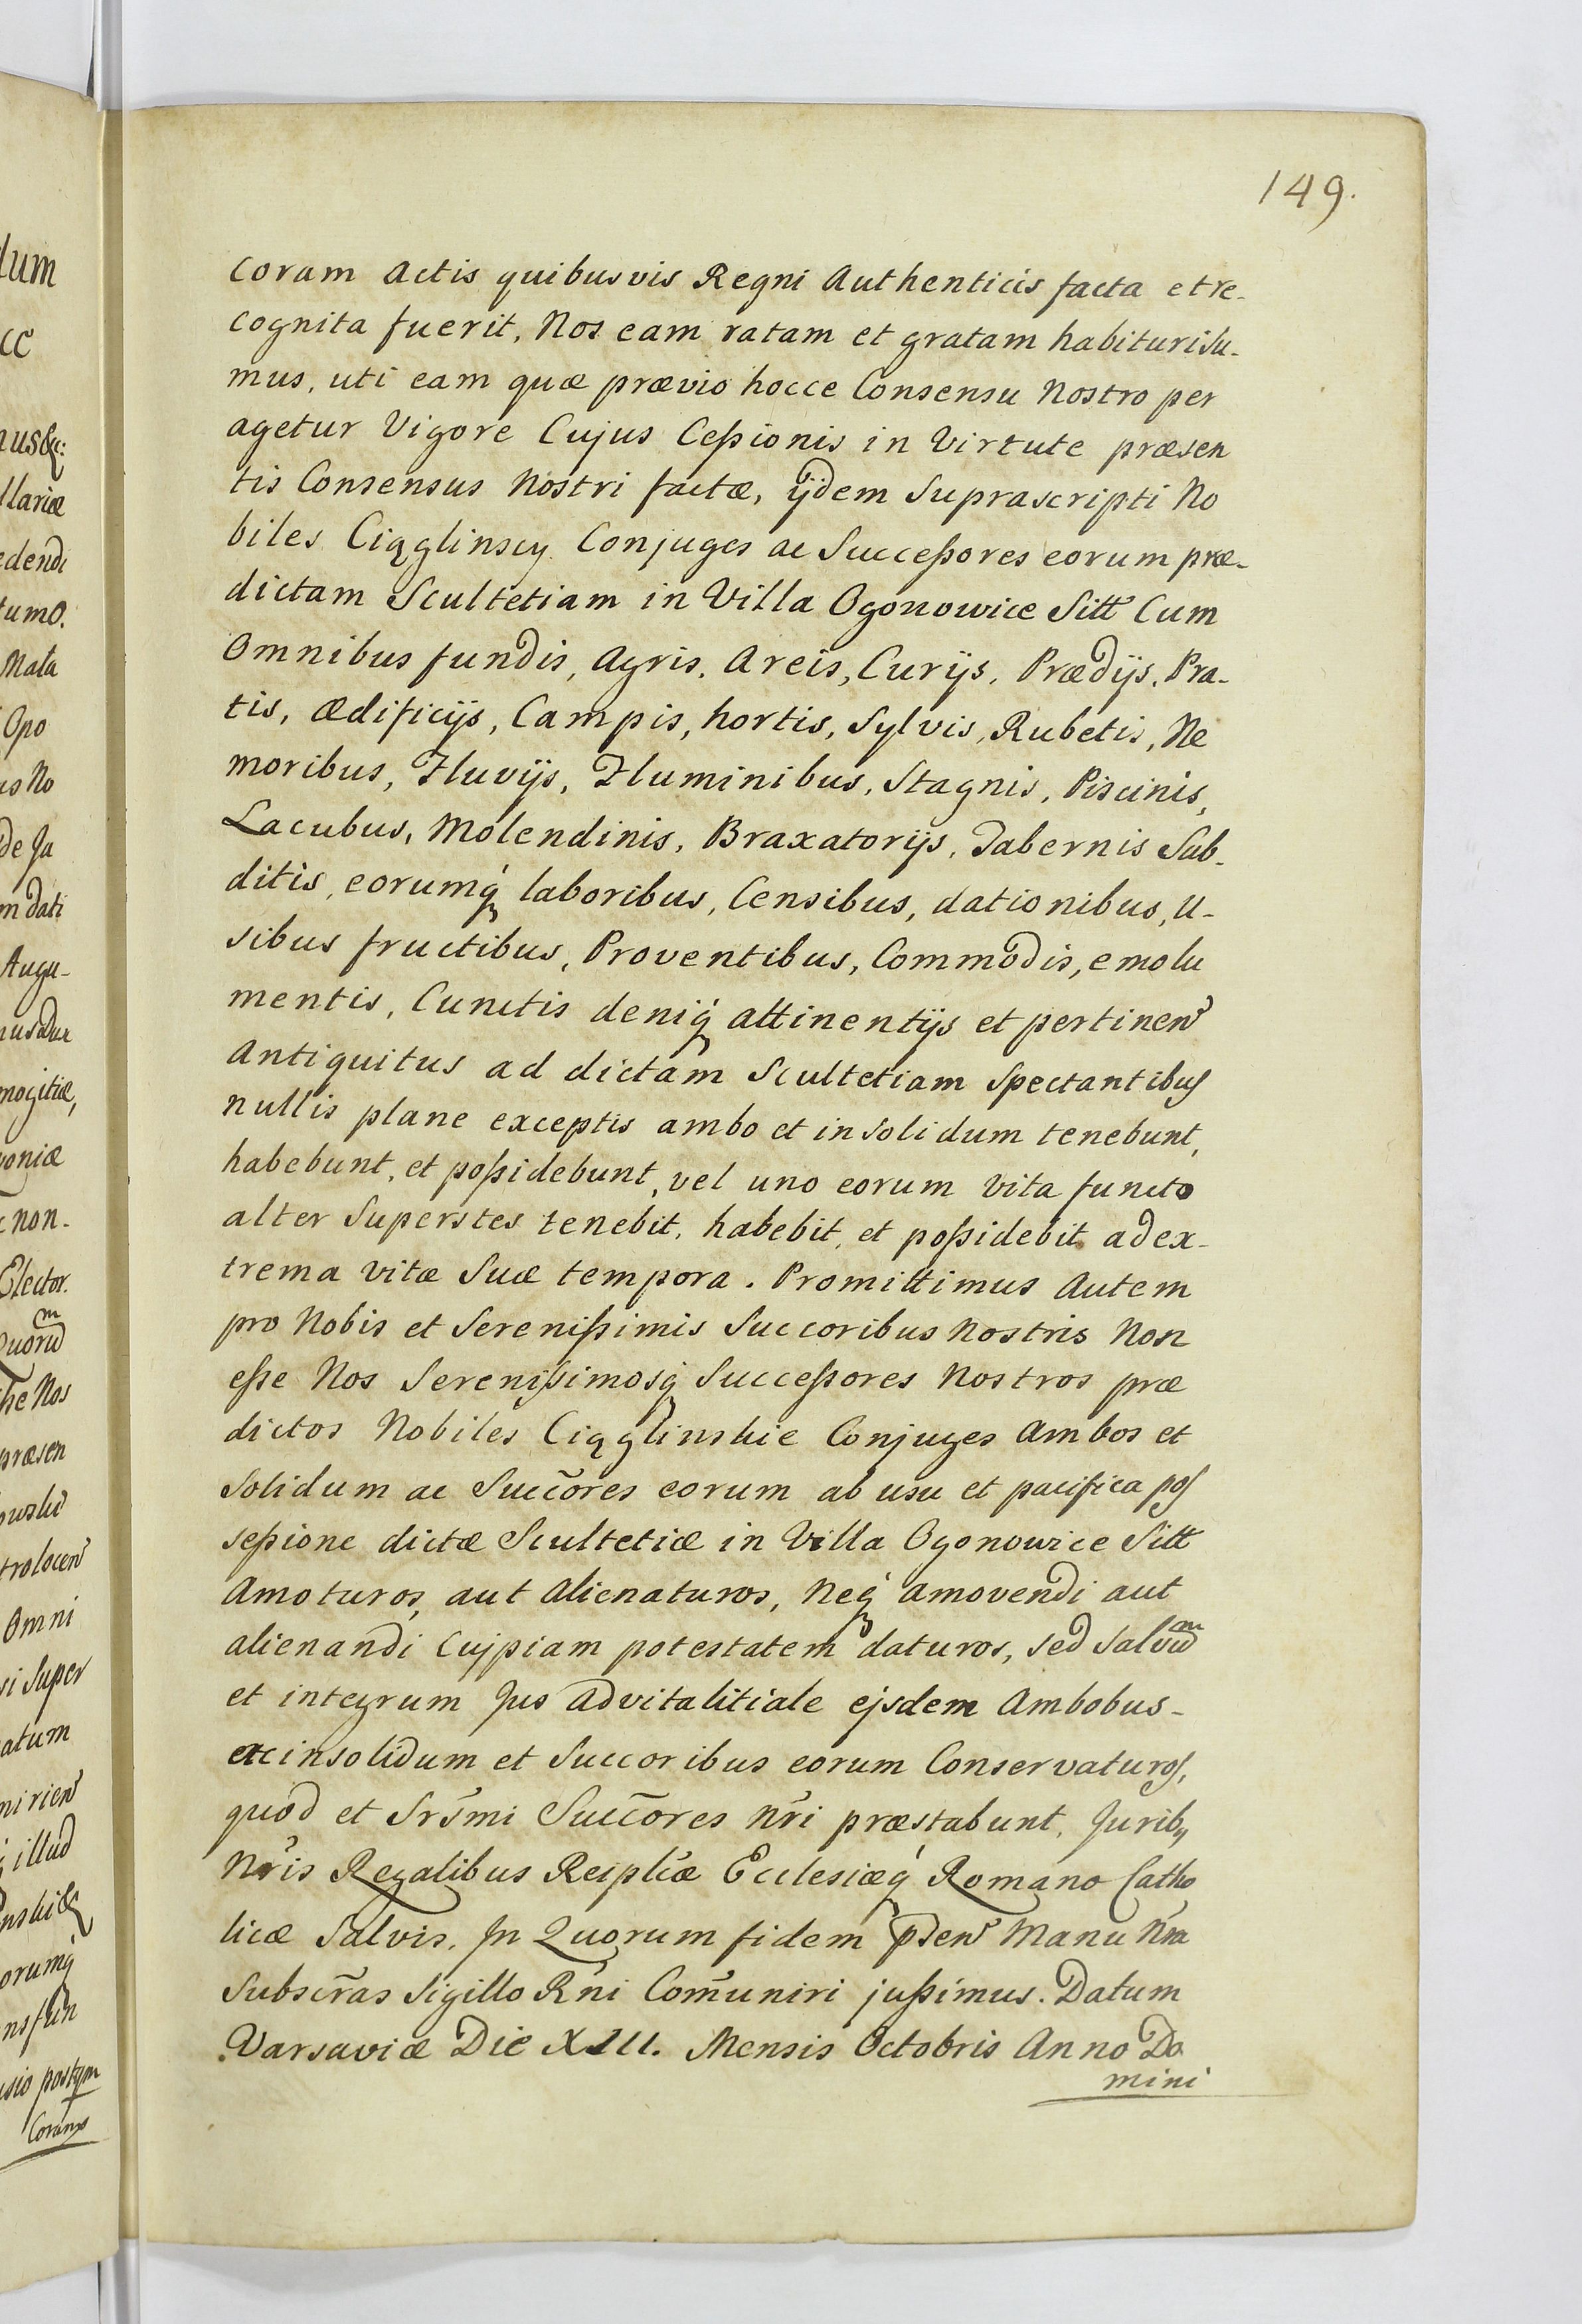 149.
coram Actis quibusvis Regni Authenticis facta et re-
cognita fuerit, Nos eam ratam et gratam habituri su-
mus, uti eam quæ prævio hocce Consensu Nostro per
agetur Vigore Cujus Ceßionis in Virtute præsen
tis Consensus Nostri factæ, ijdem Suprascripti No
biles Ciąglinscy Conjuges ac Succeßores eorum præ-
dictam Scultetiam in Villa Ogonowice Sitt Cum
Omnibus fundis, Agris, Areis, Curijs, Prædijs, Pra-
tis, Ædificijs, Campis, hortis, Sylvis, Rubetis, Ne
moribus, Fluvijs, Fluminibus, Stagnis, Piscinis,
Lacubus, Molendinis, Braxatorijs, Tabernis Sub-
ditis, eorumq́ laboribus, Censibus, dationibus, U-
sibus fructibus, Proventibus, Commodis, emolu
mentis, Cunctis deniq́ attinentijs et pertinen
Antiquitus ad dictam Scultetiam Spectantibus
nullis plane exceptis ambo et in solidum tenebunt,
habebunt, et poßidebunt, vel uno eorum Vita functo
alter Superstes tenebit, habebit, et poßidebit ad ex-
trema vitæ Suæ tempora. Promittimus Autem
pro Nobis et Sereniß​imis Succoribus Nostris Non
eße Nos Serenißimosq́ Succeßores Nostros præ
dictos Nobiles Ciąglinskie Conjuges Ambos et
Solidum ac Succ̃ores eorum ab usu et pacifica pos
seßione dictæ Scultetiæ in Villa Ogonowice Sitt
Amoturos, aut Alienaturos, Neq́ amovendi aut
alienandi Cujpiam potestatem daturos, sed Salvu͂m
et integrum Jus Advitalitiale ejsdem Ambobus-
et insolidum et Succoribus eorum Conservaturos,
quod et Srs̃mi Succ̃ores nr̃i præstabunt, Juribꝫ
Nr̃is Regalibus Reipl̃cæ Ecclesiæq́ Romano Catho
licæ Salvis. In Quorum fidem pͬden Manu Nr̃a
Subscr̃as Sigillo Rñi Com̃uniri jußimus. Datum
Varsaviæ Die XIII. Mensis Octobris Anno Do
mini